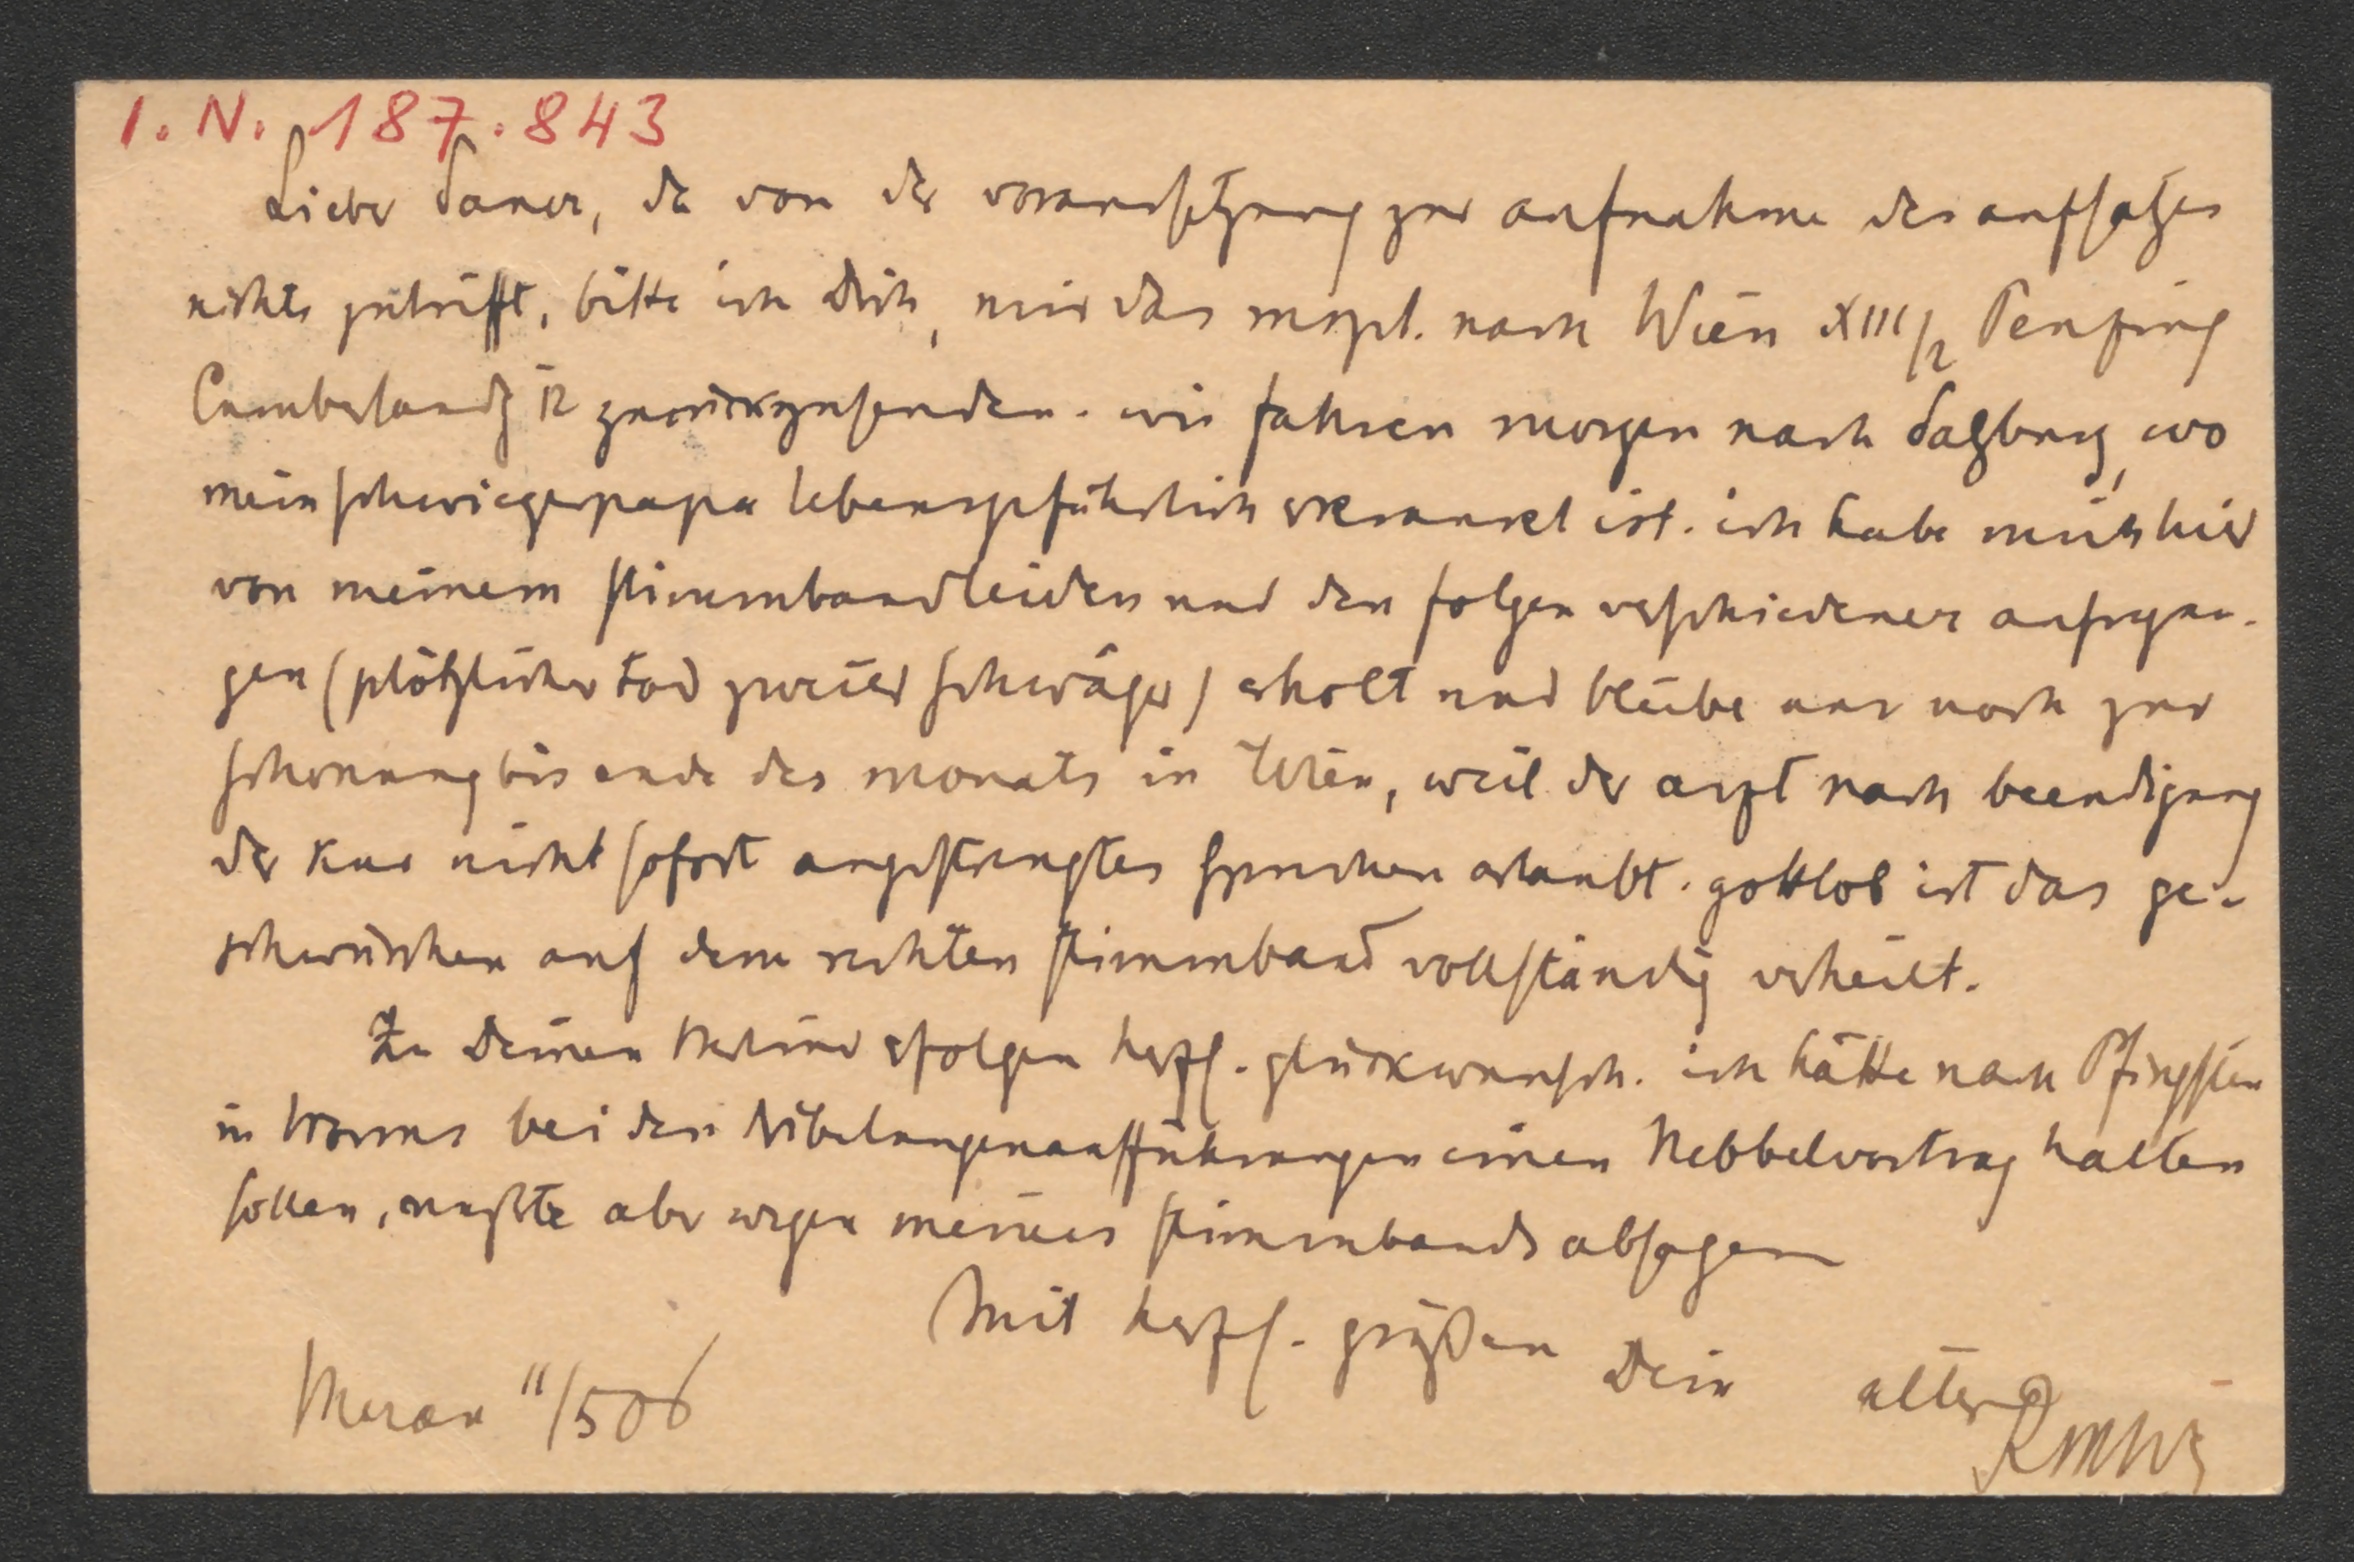 I. N. 187.843
Lieber Sauer, da von der voraussetzung zur aufnahme des aufsatzes
nichts zutrifft, bitte ich Dich, mir das mspt. nach Wien XIII/2 Penzing
Cumberlandg 12 zurückzusenden. wir fahren morgen nach Salzburg, wo
mein schwiegerpapa lebensgefährlich erkrankt ist. ich habe mich hier
von meinem stimmbandleiden und den folgen verschiedener aufregun-
gen (plötzlicher tod zweier schwäger) erholt und bleibe nur noch zur
schonung bis ende des monats in Wien, weil der arzt nach beendigung
der kur nicht sofort angestrengtes sprechen erlaubt. gottlob ist das ge-
schwürchen auf dem rechten stimmband vollständig verheilt.
Zu Deinen Berliner erfolgen herzl. glückwunsch. ich hätte nach Pfingsten
in Worms bei den Nibelungenaufführungen einen Hebbelvortrag halten
sollen, mußte aber wegen meines stimmbands absagen
Mit herzl. grüßen Dein alter
Meran 11/5 06
RMW